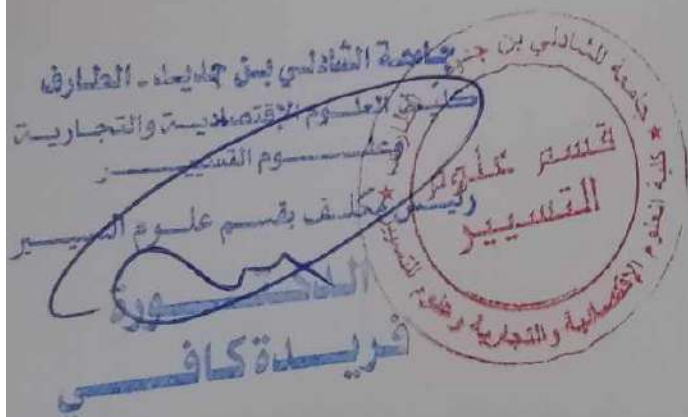 جامعة الشاذلي بن جديد - الطارف
كلية العلوم الإقتصادية والتجارية
وعلوم التسيير
رئيس مكلف بقسم علوم التسيير
الدكتورة
فريدة كافي
جامعة الشاذلي بن جديد
* كلية العلوم الإقتصادية والتجارية وعلوم التسيير *
قسم علوم
التسيير